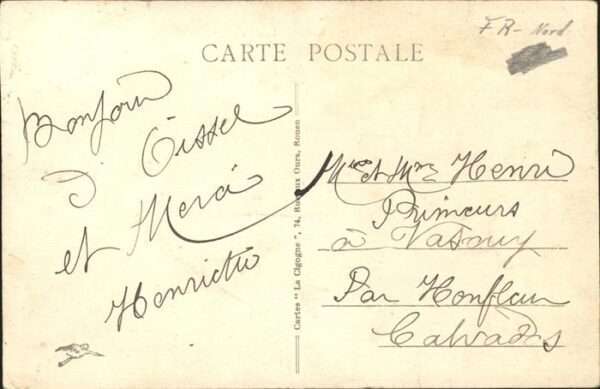 FR - Nord
CARTE POSTALE
Bonjour
d'Oissel
et Merci
Henriette
Cartes "La Cigogne", 74, Rue aux Ours, Rouen
Mr et Mme Henri
Primeurs
à Vasouy
Par Honfleur
Calvados